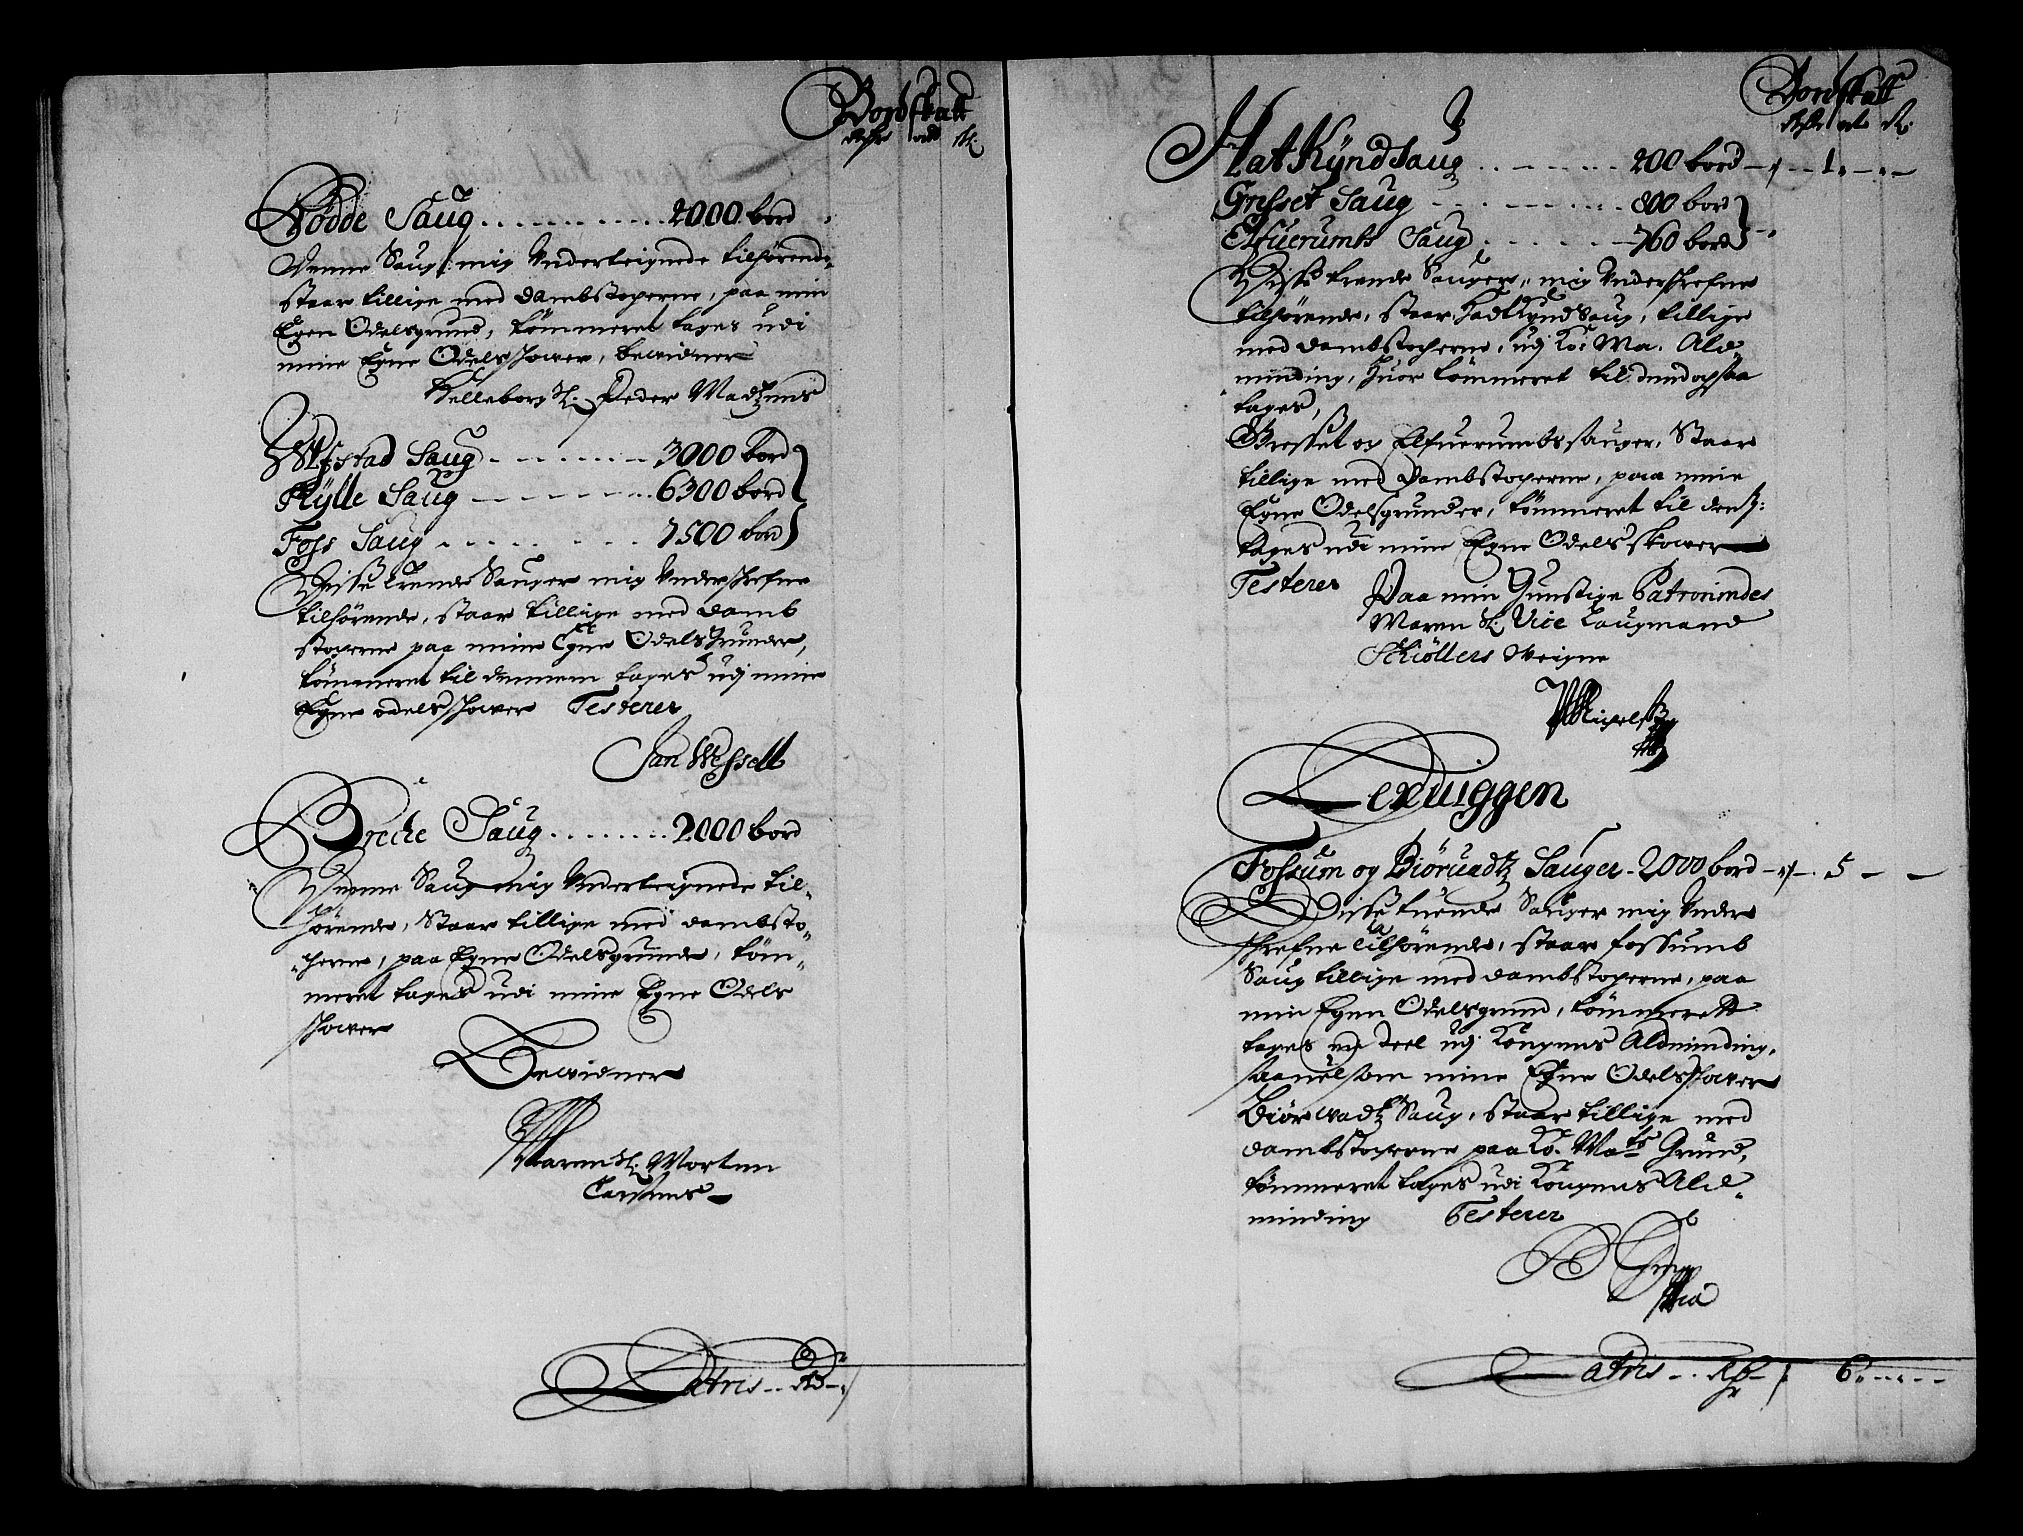 Bordskatt
Rdr ort sk.
Rødde Saug . . . . . . . . . . . . 2000 bord
Denne Saug, mig Vnderteignede tilhørende,
staar tillige med dambstoperne, paa min
Egen Odelsgrund, tømmeret tages udi
mine Egne Odelsskower, bewidner
Helleborg Sl. Peder Madtzens
Wifstad Saug - - - - - - - 3000 bord
Kylle Saug - - - - - - - 6300 bord
Foss Saug . . . . . . . . 7500 bord
Disse trende Sauger mig Vnderskrefne
tilhørende, staar tillige med damb
stoperne paa mine Egne Odels Grunder,
tømmeret til dennem tages udj mine
Egne odelsskower Testerer
Jan Wessell
Breche Saug . . . . . . . . 2000 bord
Denne Saug mig Vnderteignede til-
hørende, Staar tillige med dambsto-
perne, paa Egne Odelsgrunde, töm-
meret tages udi mine Egne Odels
skower
Bewidner
Maren Sl: Morten
Latris . . Rdr
Bordskatt
Rdr ort sk.
HatKlyndSaug . . - - - - - 200 bord - - 1. - . -
Gresset Saug - - - - - - - 800 bord
Elfuerumbs Saug . - - - - - 760 bord
Disse trende Sauger, mig Vnderskrefne
tilhørende, staar Hadklyndsaug, tillige
med dambstoperne, udj Ko: Ma. Ald-
minding, huor tømmeret til dend ogsaa
tages,
Gresset og Elfuerumbs sauger, Staar
tillige med Dambstoperne, paa mine
Egne Odelsgrunder, tømmeret til denß:
tages udi mine Egne Odels skower
Testerer Paa min Gunstige Patronindes
Maren Sl: Vice Laugmand
Schiöllers Weigne
Lexuiggen
Fossum og Biöruadtz Sauger - 2000 bord - - 5 - -
Disse tuende Sauger mig Vnder
skrefne tilhørende, staar fossumb
Saug tillige med dambstoperne, paa
min Egen Odelsgrund, tømmerett
tages en deel udj Kongens Aldminding,
saauelsom mine Egne Odelsskower
Biörwadtz Saug, staar tillige med
dambstoperne paa Ko. Ma:ts Grund,
tømmeret tages udi Kongens Ald-
minding Testerer
Latris - . Rdr 6. - . - . -